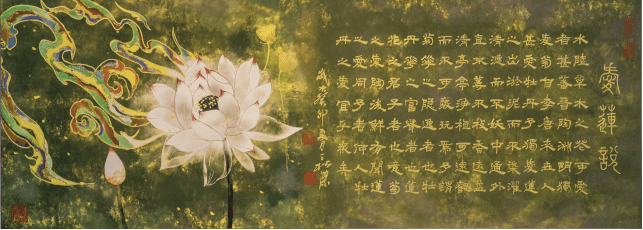 愛蓮說
水陸草木之花可愛
者甚蕃晉陶淵明獨
愛菊自李唐來世人
甚愛牡丹予獨愛蓮
之出淤泥而不染濯
清漣而不妖中通外
直不蔓不枝香遠益
清亭亭淨植可遠觀
而不可褻玩焉予謂
菊花之隱逸者也牡
丹花之富貴者也蓮
花之君子者也噫菊
之愛陶後鮮有聞蓮
之愛同予者何人牡
丹之愛宜乎衆矣
歲癸卯